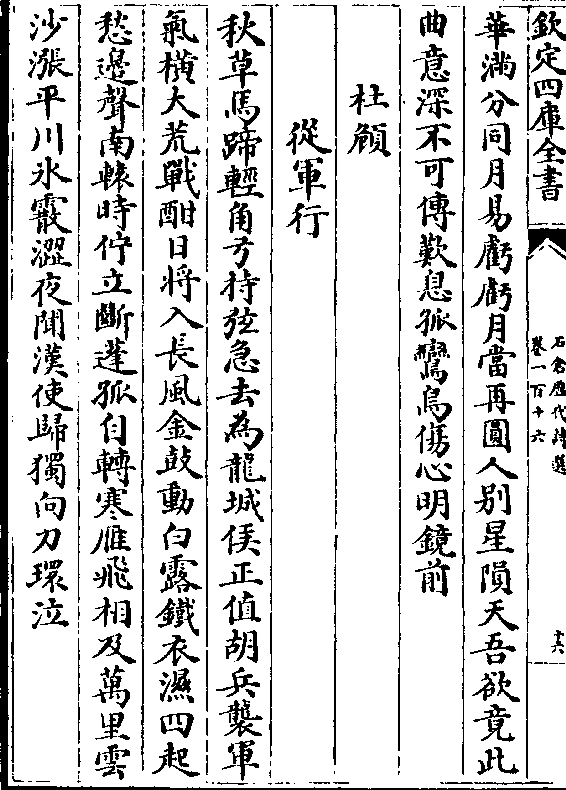 欽定四庫全書
石倉歷代詩選
卷一百十六
十六
華滿分同月易虧虧月當再圓人别星隕天吾欲竟此
曲意深不可傳歎息孤鸞鳥傷心明鏡前
杜頠
從軍行
秋草馬蹄輕角弓持弦急去為龍城俟正值胡兵襲軍
氣横大荒戰酣日将入長風金鼓動白露鐵衣濕四起
愁邊聲南轅時佇立斷蓬孤自轉寒雁飛相及萬里雲
沙漲平川氷霰澀夜聞漢使歸獨向刀環泣